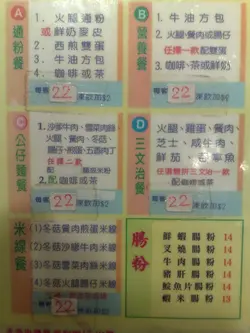 A
通粉餐
1. 火腿通粉
或鮮奶麥皮
2. 西煎雙蛋
3. 牛油方包
4. 咖啡或茶
22 凍飲加$2
B
營養餐
1. 牛油方包
2. 火腿、餐肉或腸仔
任擇一款 配雙蛋
3. 咖啡、茶或鮮奶
22 凍飲加$2
C
公仔麵餐
1. 沙嗲牛肉、雪菜肉絲
火腿、餐肉、冬菇
腸仔、煎蛋、五香肉丁
任擇二款
2. 配咖啡或茶
22 凍飲加$2
D
三文治餐
火腿、雞蛋、餐肉
芝士、咸牛肉、
鮮茄、
任選雙拼三文治一款
配咖啡或茶
22 凍飲加$2
米線餐
(1)冬菇餐肉煎蛋米線
(2)冬菇沙嗲牛肉米線
(3)冬菇雪菜肉絲米線
(4)冬菇火腿腸仔米線
22 凍飲加$2
腸粉
鮮蝦腸粉 14
叉燒腸粉 14
牛肉腸粉 14
豬肝腸粉 14
鯪魚片腸粉 14
蝦米腸粉 13